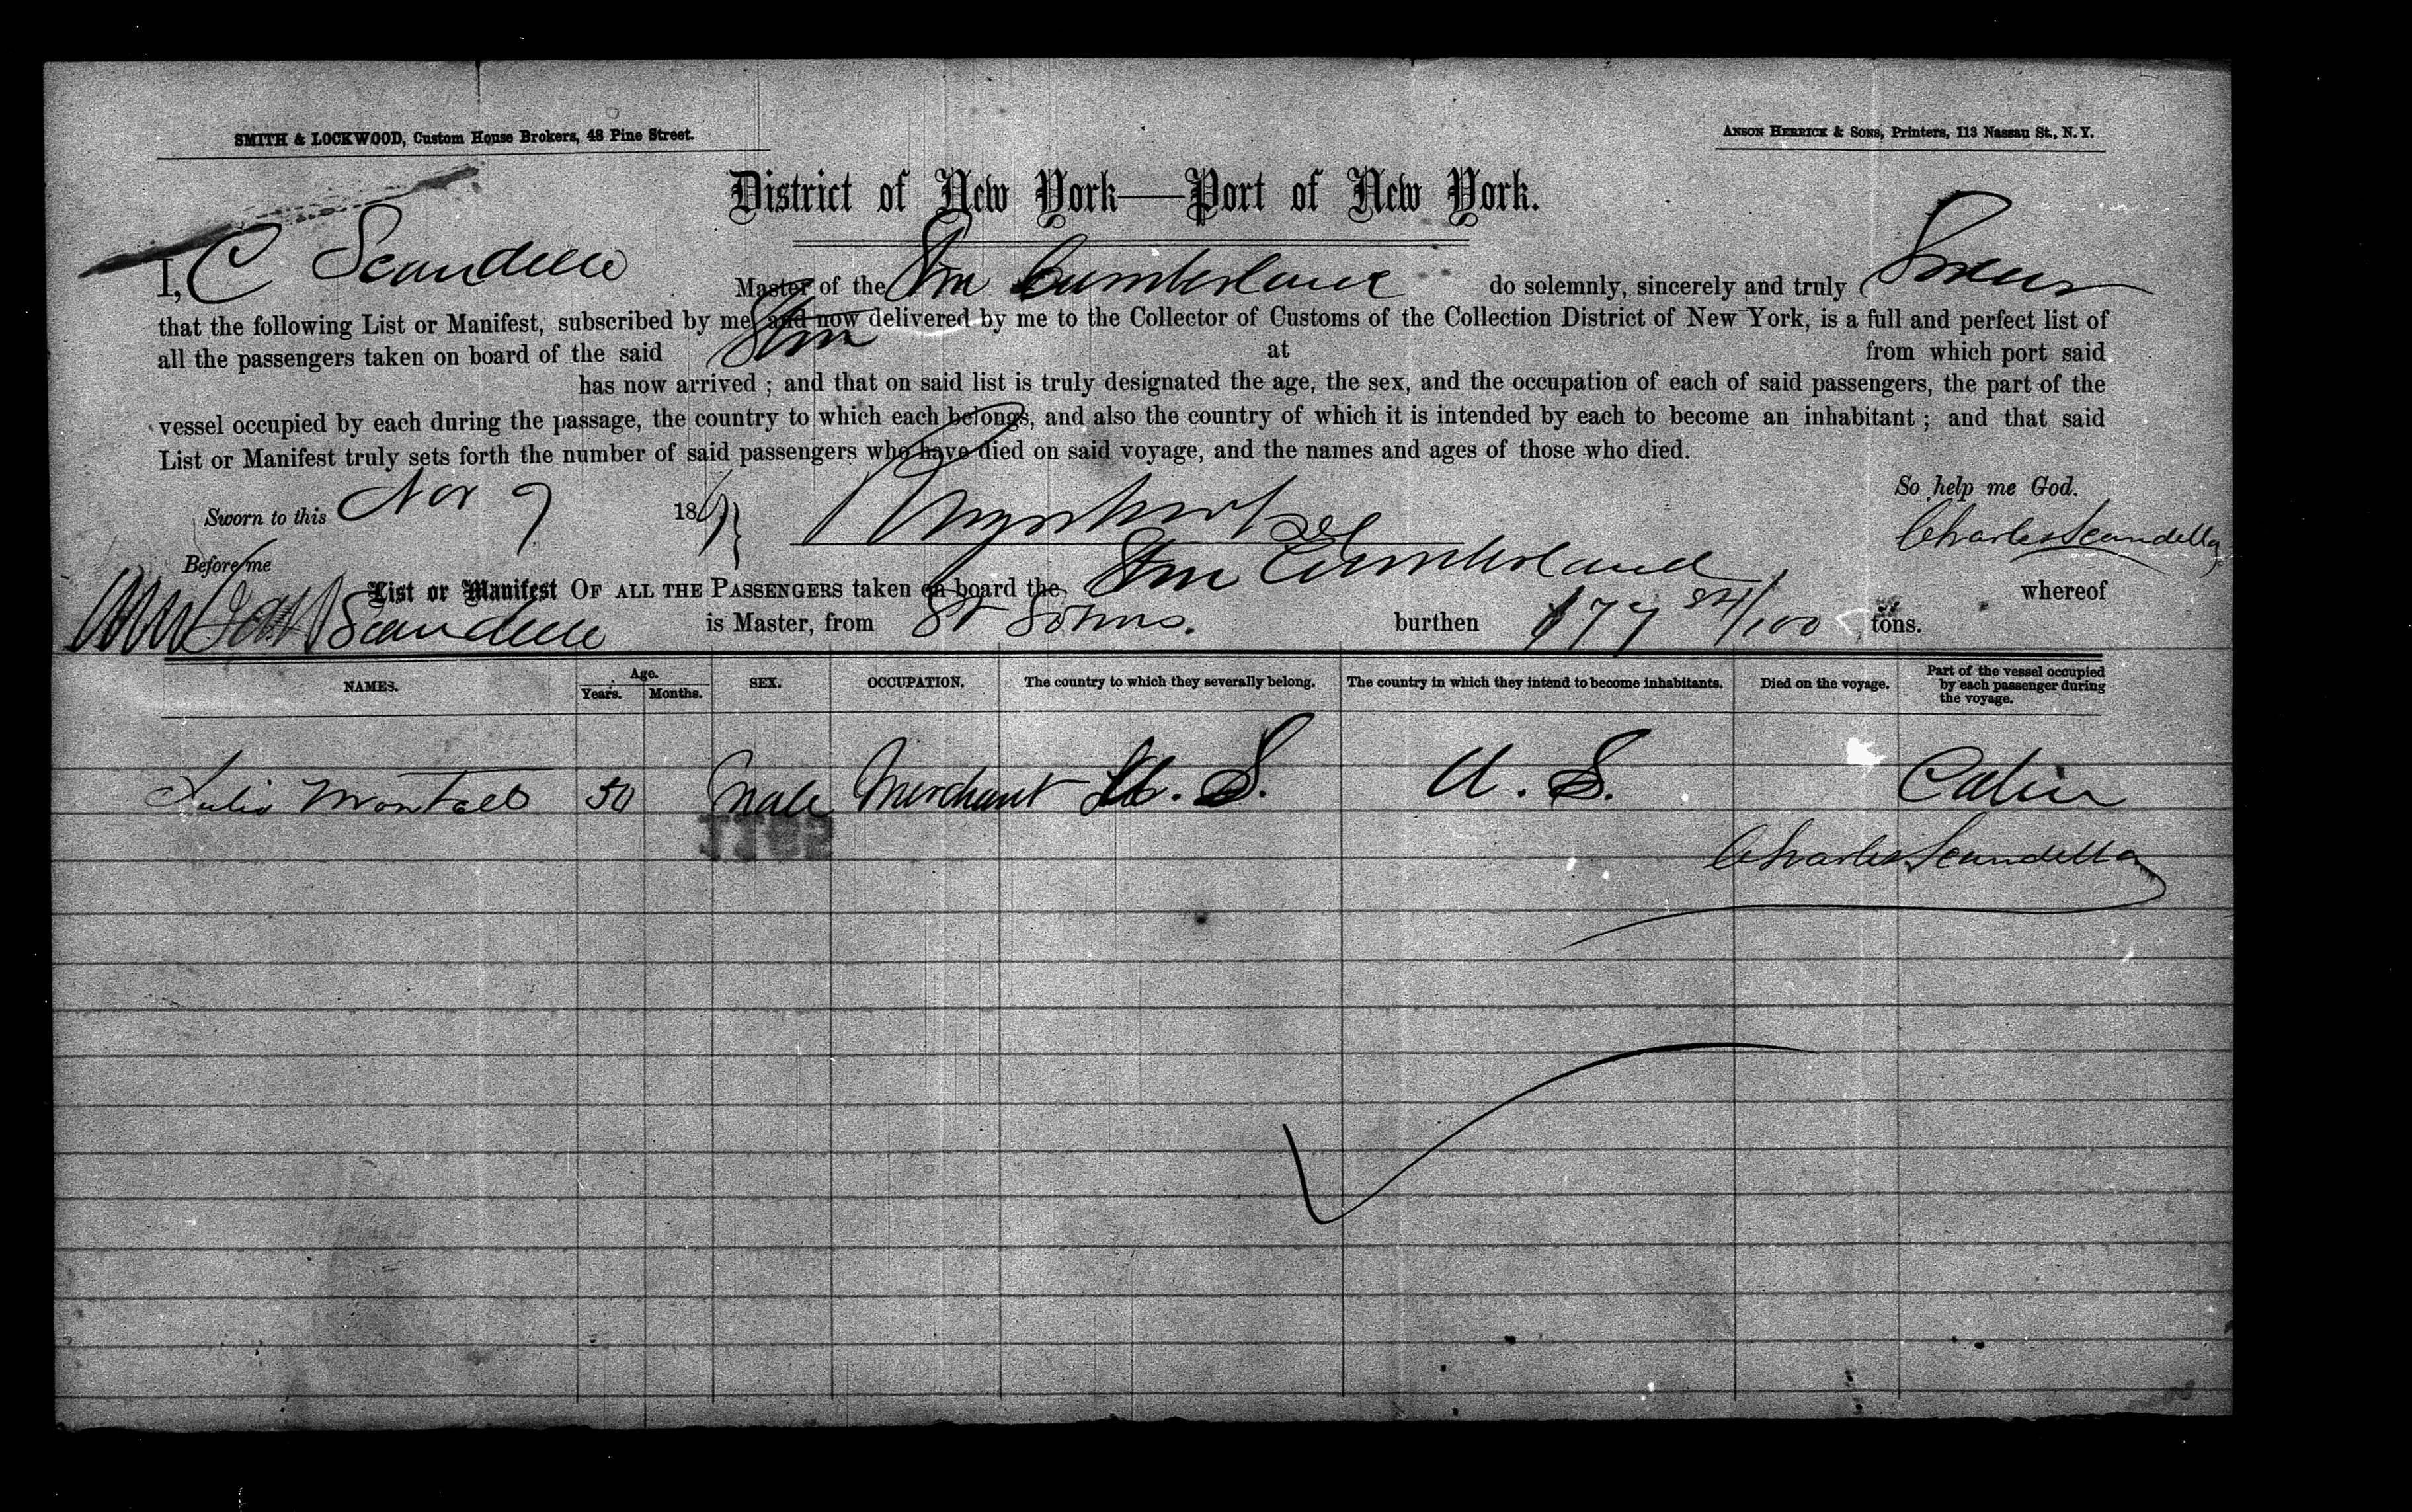 SMITH & LOCKWOOD, Custom House Brokers, 48 Pine Street.
ANSON HERRICK & SONS, Printers, 113 Nassau St., N. Y.
District of New York—Port of New York.
I, C Scandella Master of the Stm Cumberland do solemnly, sincerely and truly Swear
that the following List or Manifest, subscribed by me and now delivered by me to the Collector of Customs of the Collection District of New York, is a full and perfect list of
all the passengers taken on board of the said Stm at from which port said
has now arrived ; and that on said list is truly designated the age, the sex, and the occupation of each of said passengers, the part of the
vessel occupied by each during the passage, the country to which each belongs, and also the country of which it is intended by each to become an inhabitant ; and that said
List or Manifest truly sets forth the number of said passengers who have died on said voyage, and the names and ages of those who died.
So help me God.
Sworn to this Nov 9 186
Charles Scandella
Before me
List or Manifest OF ALL THE PASSENGERS taken on board the Stm Cumberland whereof
Scandella is Master, from St Johns. burthen 84/100 tons.
NAMES. Age. Years. Months. SEX. OCCUPATION. The country to which they severally belong. The country in which they intend to become inhabitants. Died on the voyage. Part of the vessel occupied by each passenger during the voyage.
Julio 50 Male Merchant U. S. U. S. Cabin
Charles Scandella